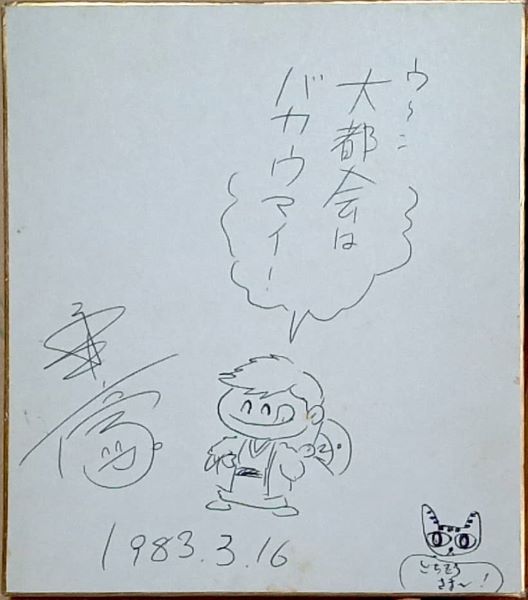 ウ〜ン
大都会は
バカウマイー
1983.3.16
ごちそう
さま〜!